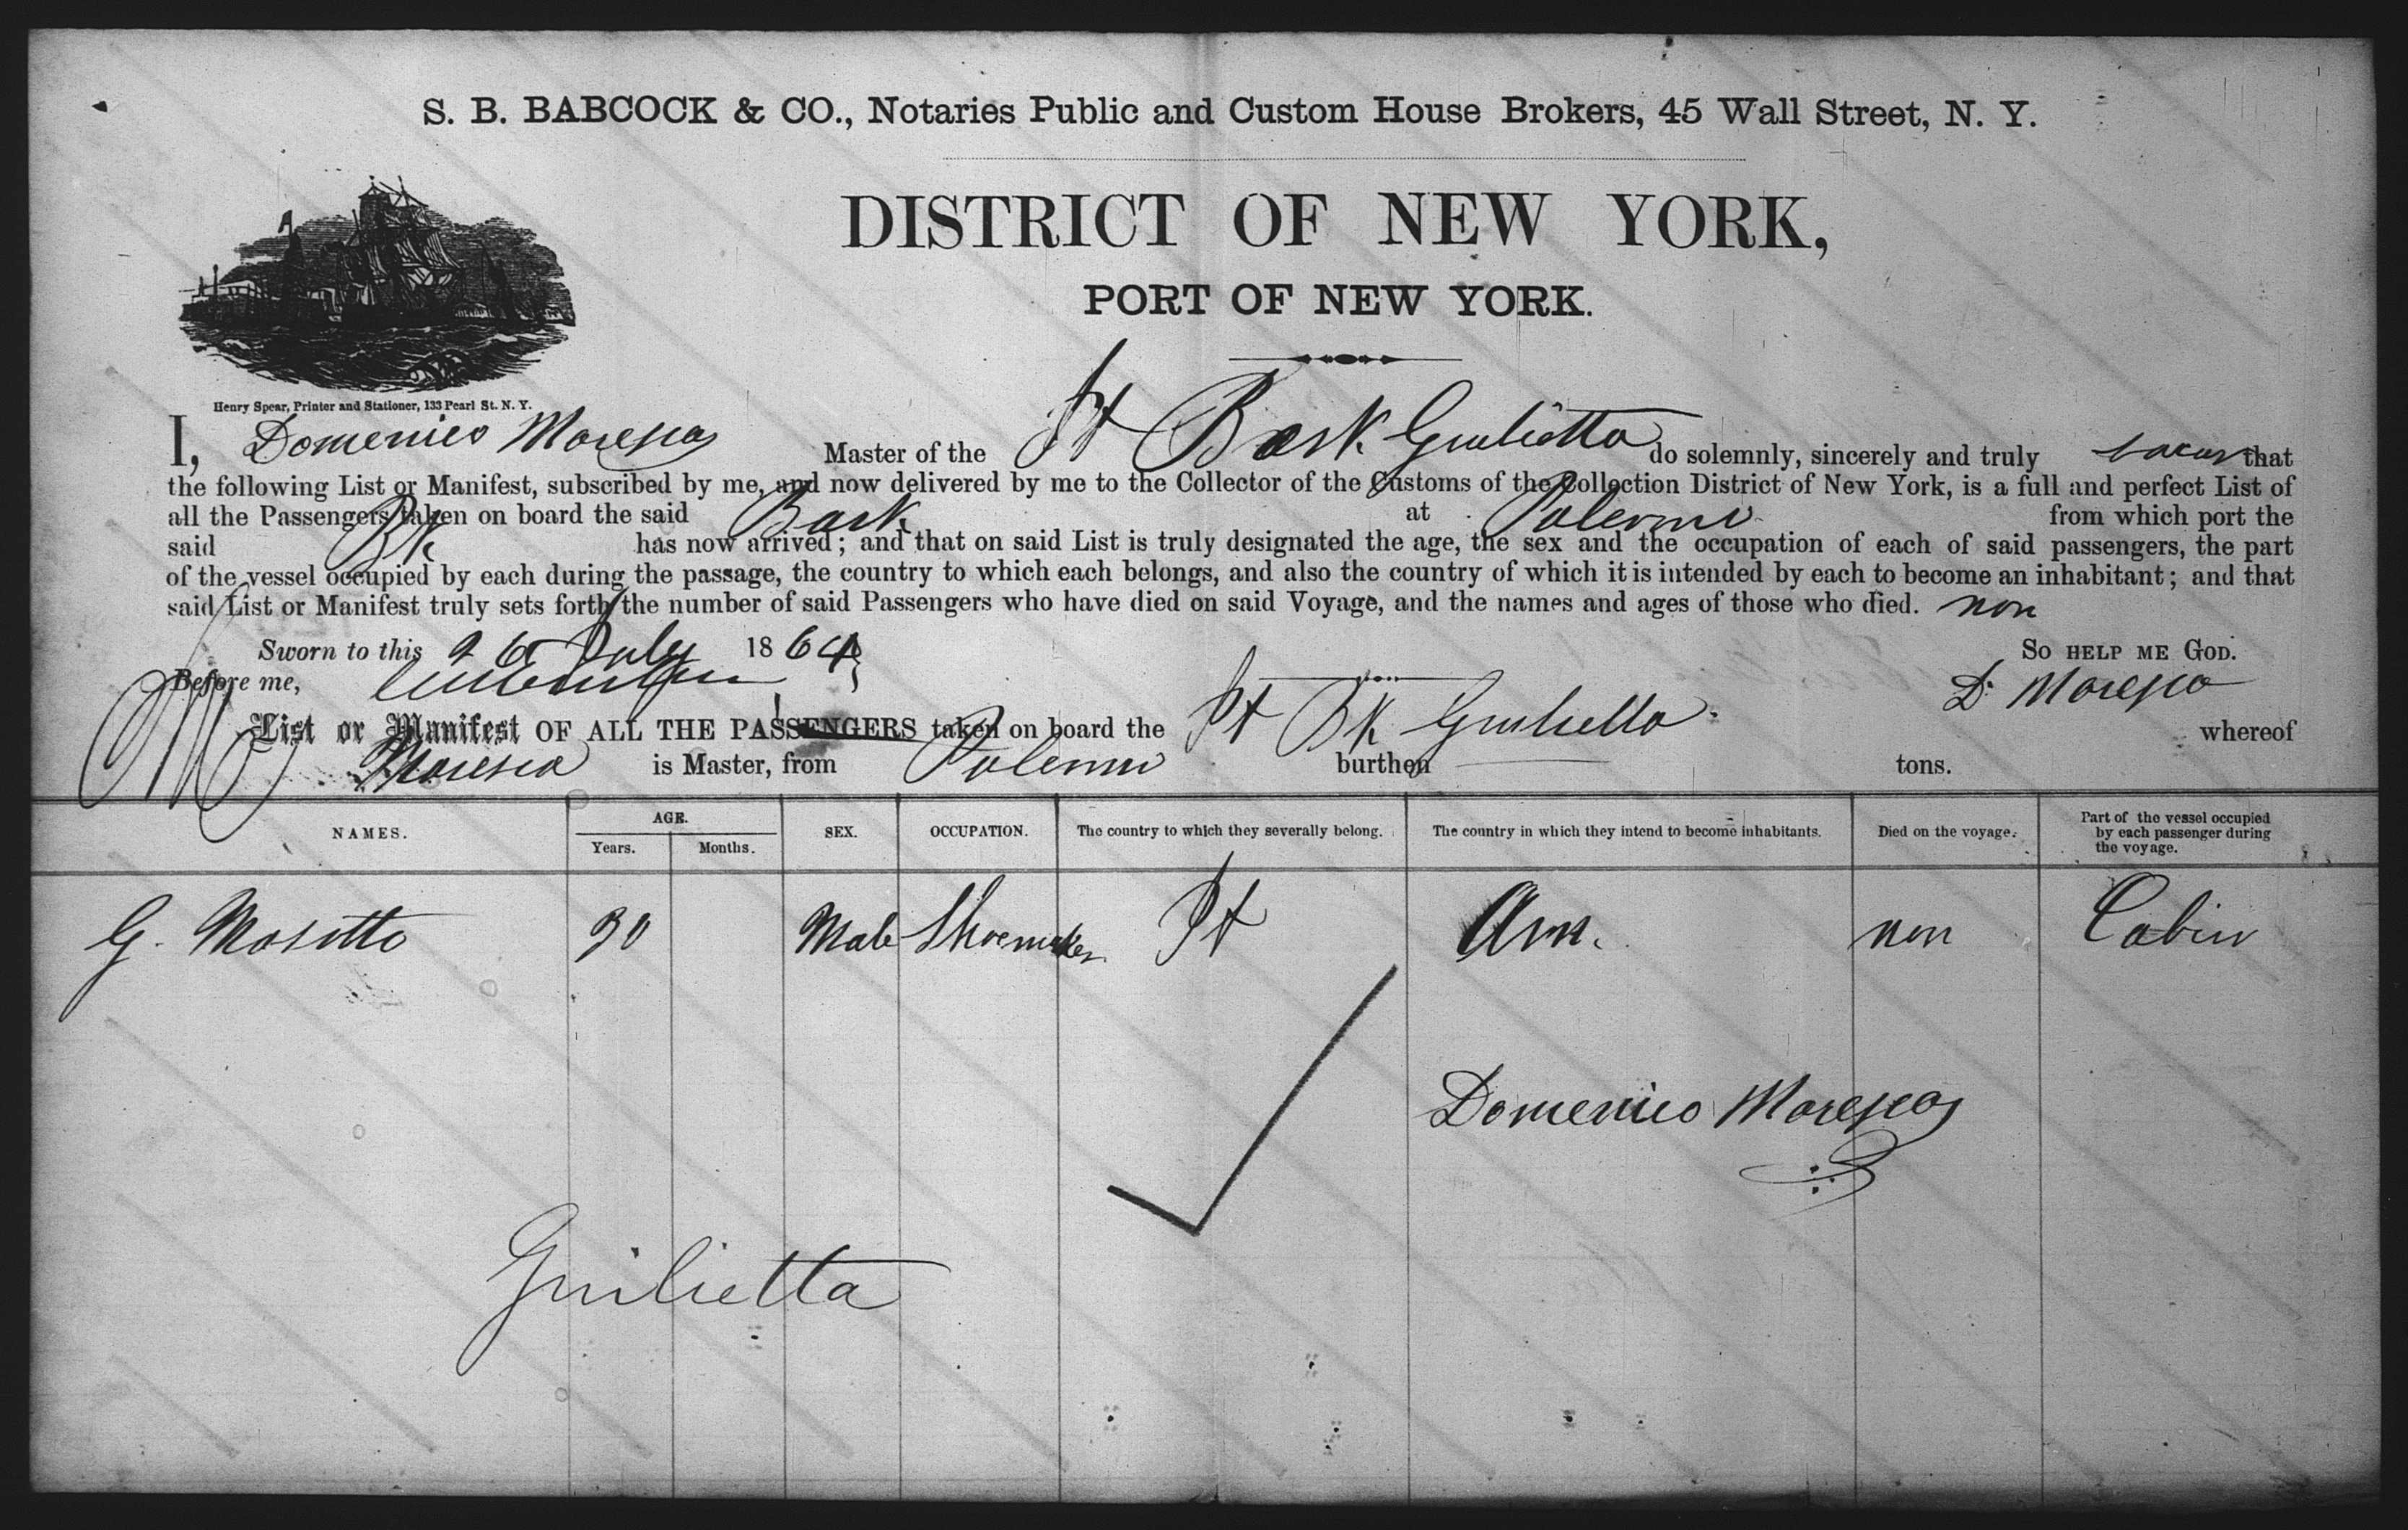 S. B. BABCOCK & CO., Notaries Public and Custom House Brokers, 45 Wall Street, N. Y.
DISTRICT OF NEW YORK,
PORT OF NEW YORK.
Henry Spear, Printer and Stationer, 133 Pearl St. N. Y.
I, Domenico Maresca Master of the It Bark Giulietta do solemnly, sincerely and truly swear that
the following List or Manifest, subscribed by me, and now delivered by me to the Collector of the Customs of the Collection District of New York, is a full and perfect List of
all the Passengers taken on board the said Bark at Palermo from which port the
said Bk has now arrived; and that on said List is truly designated the age, the sex and the occupation of each of said passengers, the part
of the vessel occupied by each during the passage, the country to which each belongs, and also the country of which it is intended by each to become an inhabitant; and that
said List or Manifest truly sets forth the number of said Passengers who have died on said Voyage, and the names and ages of those who died. non
Sworn to this 26 July 1864 So HELP ME GOD.
Before me, D. Maresca
List or Manifest OF ALL THE PASSENGERS taken on board the It Bk Giulietta whereof
Maresca is Master, from Palermo burthen tons.
NAMES. AGE. Years. Months. SEX. OCCUPATION. The country to which they severally belong. The country in which they intend to become inhabitants. Died on the voyage. Part of the vessel occupied by each passenger during the voyage.
G. Masotto 30 Male Shoemaker It Am. non Cabin
Domenico Maresca
Giulietta